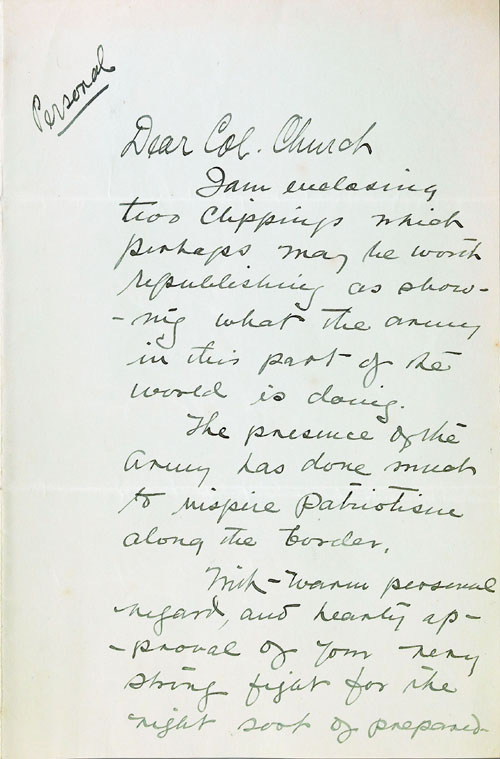 Personal
Dear Col. Church
I am enclosing
two clippings which
perhaps may be worth
republishing as show-
-ing what the army
in this part of the
world is doing.
The presence of the
Army has done much
to inspire patriotism
along the border.
With warm personal
regard, and hearty ap-
-proval of your very
strong fight for the
right sort of prepared-